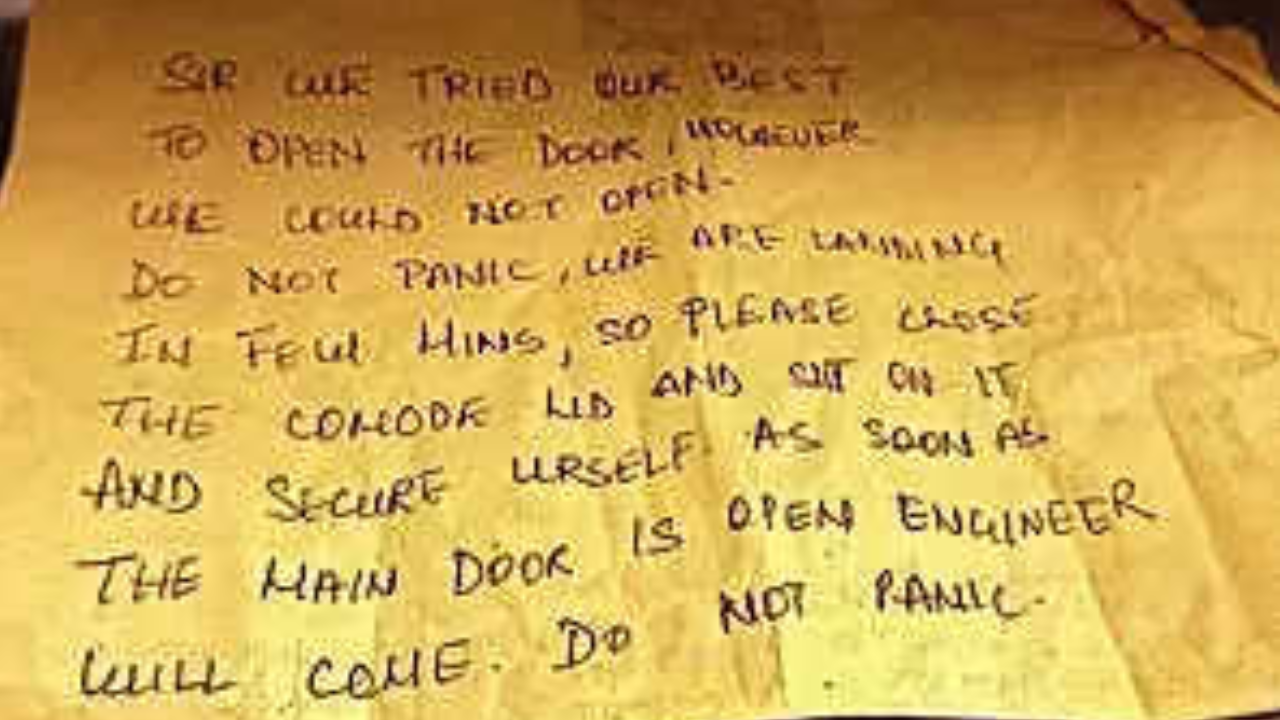 SIR WE TRIED OUR BEST
TO OPEN THE DOOR, HOWEVER
WE COULD NOT OPEN.
DO NOT PANIC, WE ARE LANDING
IN FEW MINS, SO PLEASE CLOSE
THE COMODE LID AND SIT ON IT
AND SECURE URSELF AS SOON AS
THE MAIN DOOR IS OPEN ENGINEER
WILL COME. DO NOT PANIC.